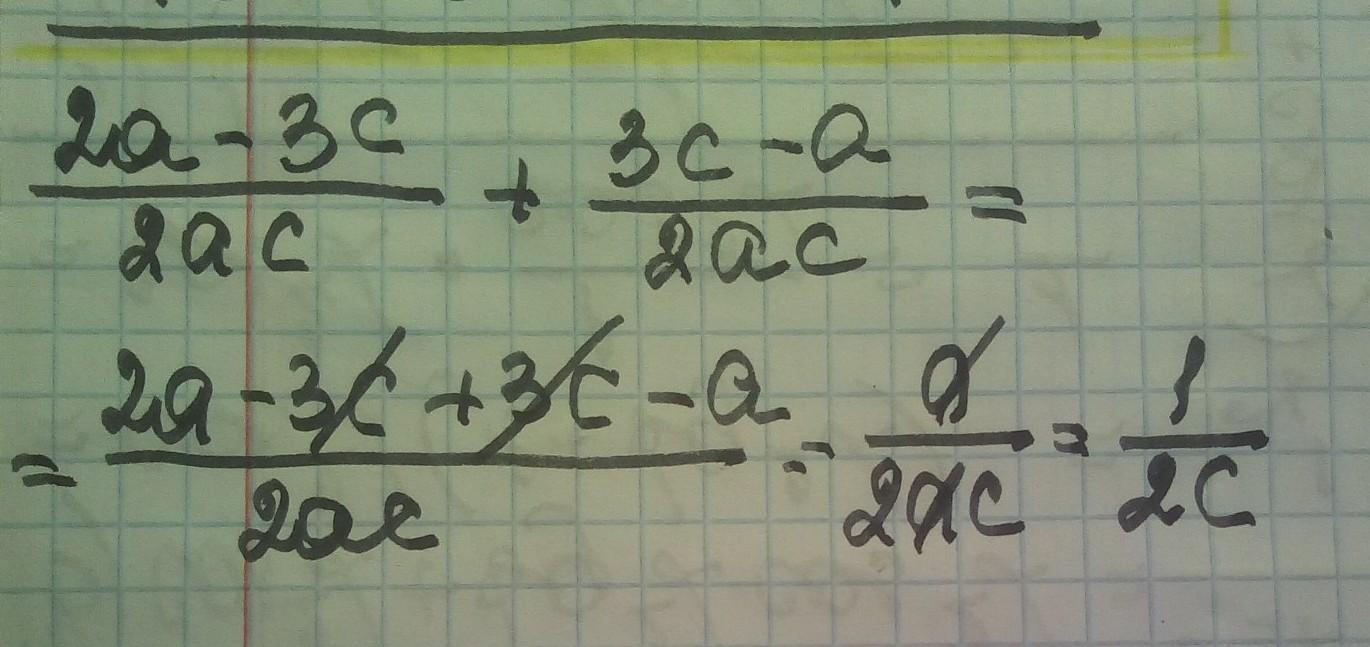 (2a - 3c)/(2ac) + (3c - a)/(2ac) =
= (2a - 3c + 3c - a)/(2ac) = a/(2ac) = 1/(2c)